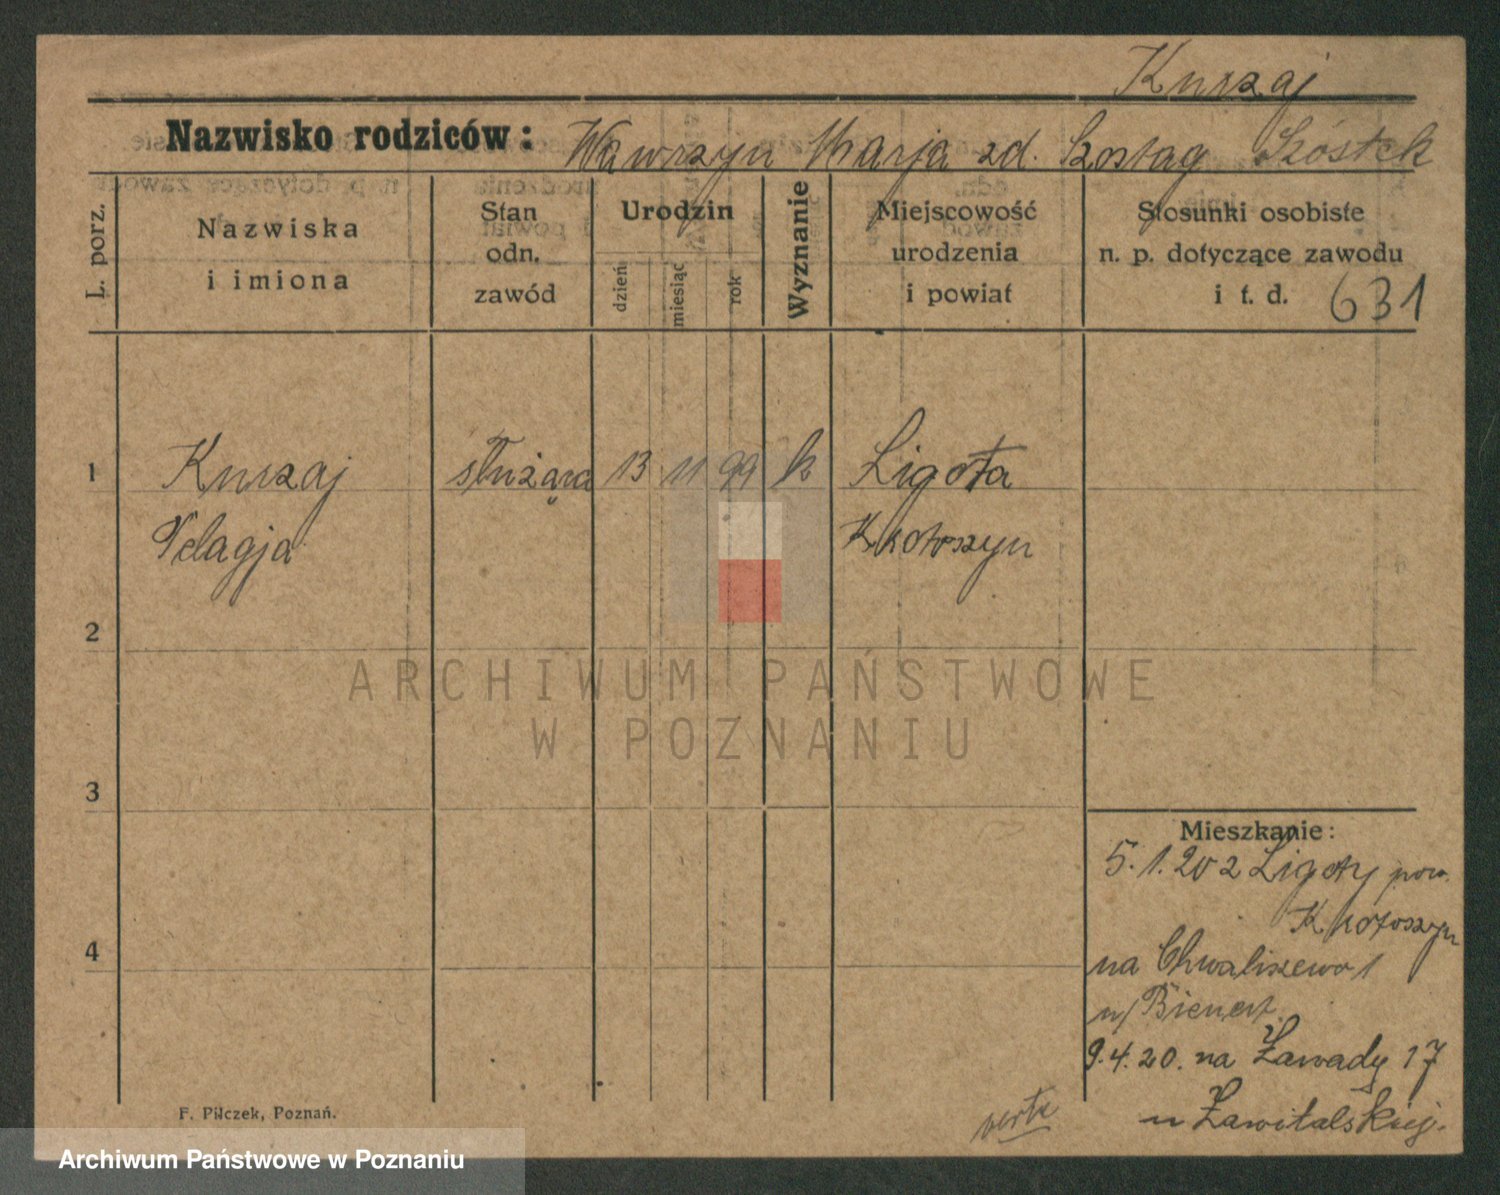 Kurzaj
Nazwisko rodziców: Wawrzyn Marja zd. Szostag Szóstek
L. porz.
Nazwiska
i imiona
Stan
odn.
zawód
Urodzin
dzień
miesiąc
rok
Wyznanie
Miejscowość
urodzenia
i powiat
Stosunki osobiste
n. p. dotyczące zawodu
i t. d. 631
1 Kurzaj służąca 13 11 99 k Ligota
Pelagja Krotoszyn
2
3
4
Mieszkanie:
5.1.20 z Ligoty pow.
Krotoszyn
na Chwaliszewo 1
u/ Bienert.
9.4.20. na Zawady 17
u Zawitalskiej.
verte
F. Pilczek, Poznań.
ARCHIWUM PAŃSTWOWE
W POZNANIU
Archiwum Państwowe w Poznaniu